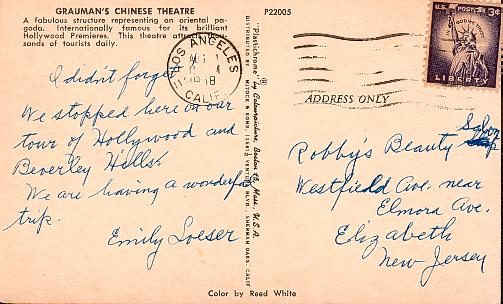 GRAUMAN'S CHINESE THEATRE
A fabulous structure representing an oriental pa-
goda. Internationally famous for its brilliant
Hollywood Premieres. This theatre attracts
sands of tourists daily.
I didn't forget
We stopped here on our
tour of Hollywood and
Beverley Hills.
We are having a wonderful
trip.
Emily Loeser
P22005
"Plastichrome" by Colourpicture, Boston 15, Mass., U.S.A.
DISTRIBUTED BY MITOCK & SONS, VENTURA BLVD., SHERMAN OAKS, CALIF.
LOS ANGELES
CALIF.
U.S. POSTAGE 3¢
IN GOD WE TRUST
LIBERTY
ADDRESS ONLY
Robby's Beauty Salon
Westfield Ave. near
Elmora Ave.
Elizabeth
New Jersey
Color by Reed White